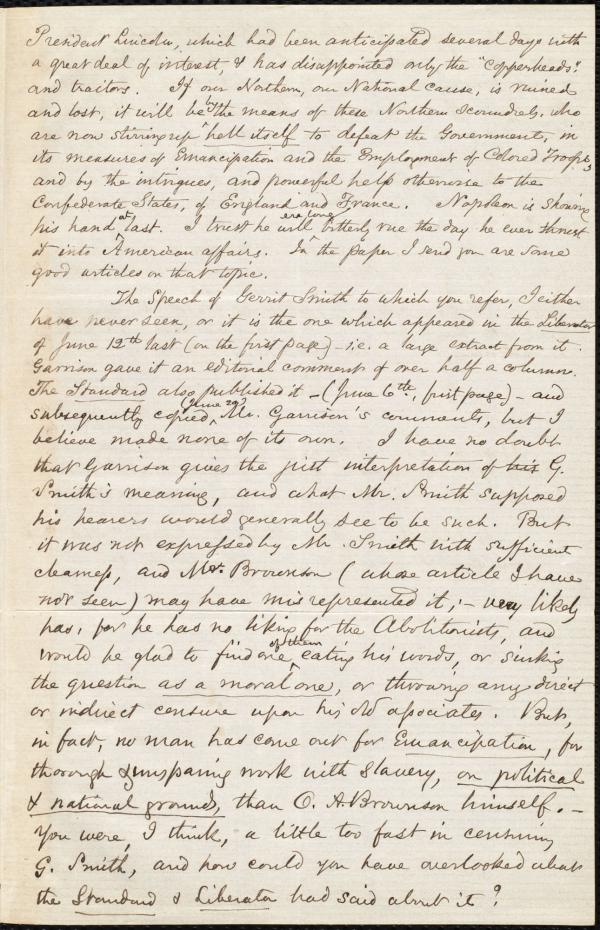 President Lincoln, which had been anticipated several days with
a great deal of interest, & has disappointed only the "Copperheads"
and traitors. If our Northern, our National cause, is ruined
and lost, it will be by the means of these Northern Scoundrels, who
are now stirring up hell itself to defeat the Government, in
its measures of Emancipation and the Employment of Colored Troops,
and by the intrigues, and powerful help otherwise to the
Confederate States, of England and France. Napoleon is showing
his hand at last. I trust he will ere long bitterly rue the day he ever thrust
it into American affairs. In the paper I send you are some
good articles on that topic.
The Speech of Gerrit Smith to which you refer, I either
have never seen, or it is the one which appeared in the Liberator
of June 12th last (on the first page) - i.e. a large extract from it.
Garrison gave it an editorial comment of over half a column.
The Standard also published it - (June 6th, first page) - and
subsequently copied (June 20) Mr. Garrison's comments, but I
believe made none of its own. I have no doubt
that Garrison gives the just interpretation of his G.
Smith's meaning, and what Mr. Smith supposed
his hearers would generally see to be such. But
it was not expressed by Mr. Smith with sufficient
clearness, and Mr. Brownson (whose article I have
not seen) may have misrepresented it; - very likely
has, for he has no liking for the Abolitionists, and
would be glad to find one of them eating his words, or sinking
the question as a moral one, or throwing any direct
or indirect censure upon his old associates. But,
in fact, no man has come out for Emancipation, for
thorough & unsparing work with Slavery, on political
& national grounds, than O. A. Brownson himself. -
You were, I think, a little too fast in censuring
G. Smith, and how could you have overlooked what
the Standard & Liberator had said about it?